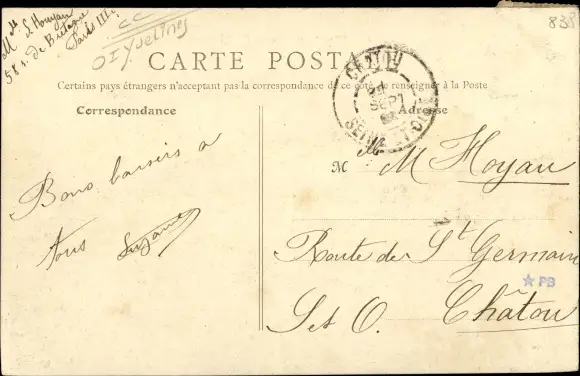 58 r. de Bretagne
Paris III
CC
Yvelines
838
CARTE POSTALE
Certains pays étrangers n'acceptant pas la correspondance de ce côté se renseigner à la Poste
Correspondance
Adresse
CHATOU
SEPT
SEINE-ET-OISE
Bons baisers à
tous Suzanne
M M Hoyau
Route de St Germain
S et O. Châtou
PB